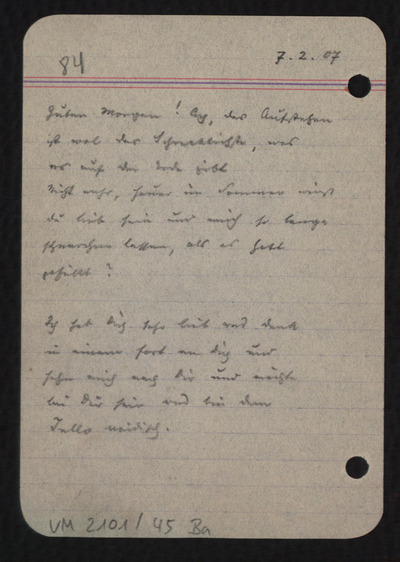 84
7.2.07
Guten Morgen! Ach, das Aufstehen
ist wol das Schrecklichste, was
es auf der Erde gibt
Nicht wahr, heuer im Sommer wirst
du lieb sein und mich so lange
schnarchen lassen, als es Gott
gefällt?
Ich hab Dich sehr lieb und denk
in einem fort an Dich und
sehne mich nach Dir und möchte
bei Dir sein und bin dem
Tello neidisch.
VM 2101/45 Ba